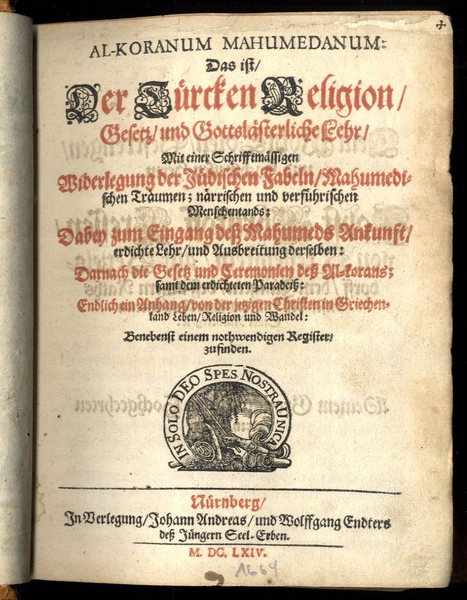 AL-KORANUM MAHUMEDANUM:
Das ist/
Der Türcken Religion/
Gesetz/und Gottslästerliche Lehr/
Mit einer Schrifftmässigen
Widerlegung der Jüdischen Fabeln/Mahumedi-
schen Träumen; närrischen und verführischen
Menschentands:
Dabey zum Eingang deß Mahumeds Ankunft/
erdichte Lehr/und Ausbreitung derselben:
Darnach die Gesetz und Ceremonien deß Al-korans;
samt dem erdichteten Paradeiß:
Endlich ein Anhang/von der jetzigen Christen in Griechen-
land Leben/Religion und Wandel:
Benebenst einem nothwendigen Register/
zufinden.
IN SOLO DEO SPES NOSTRA UNICA
Nürnberg/
In Verlegung/Johann Andreas/und Wolffgang Endters
deß Jüngern Seel-Erben.
M. DC. LXIV.
1664